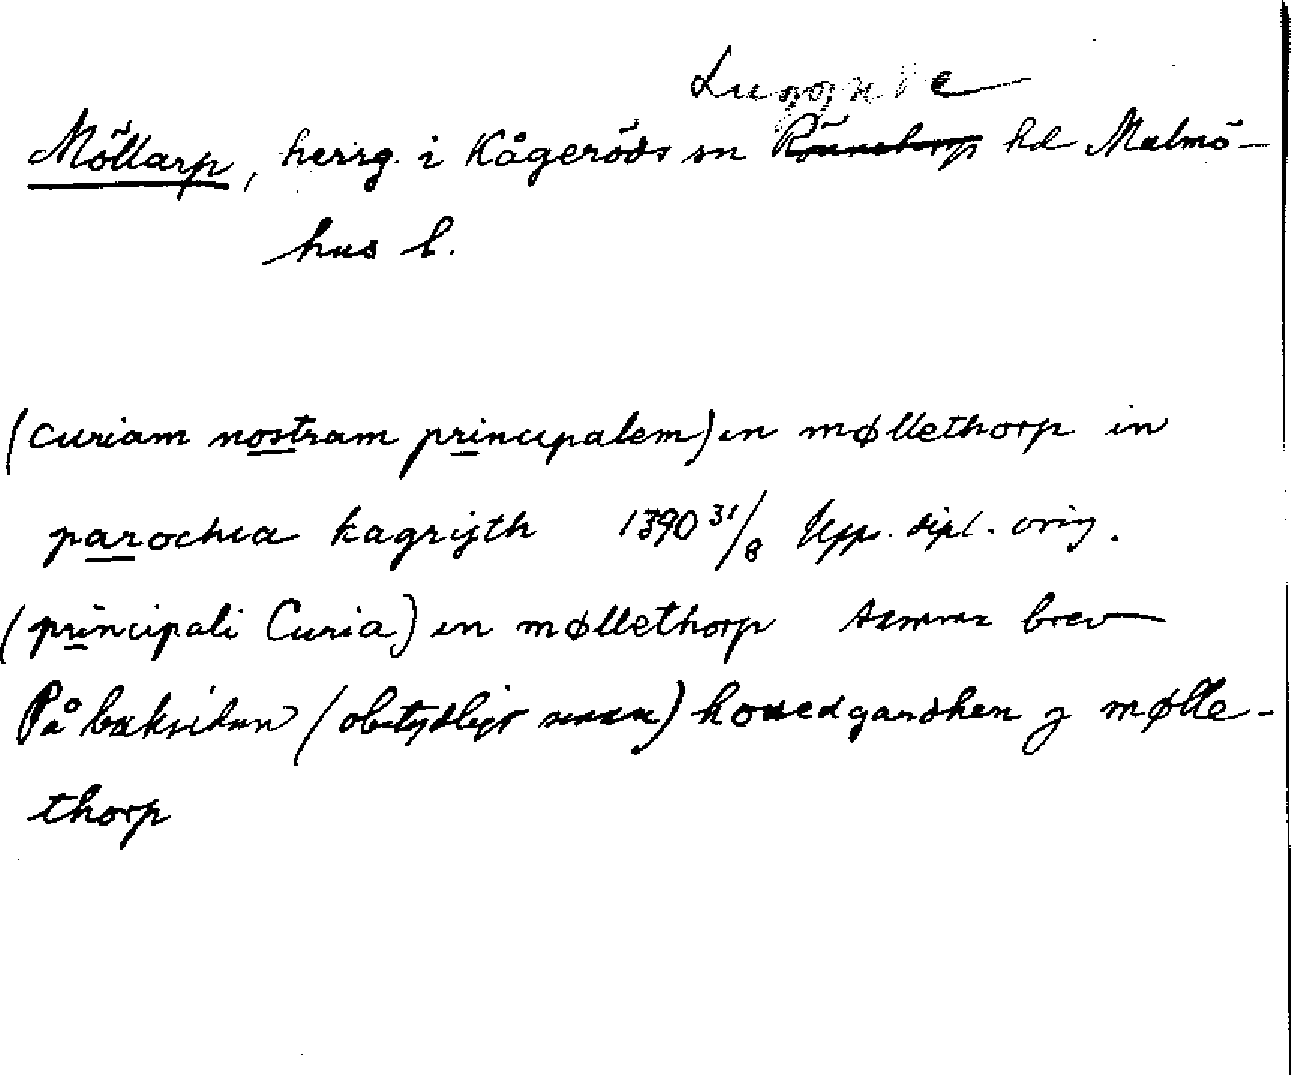 Luggude
Möllarp, herrg. i Kågeröds sn Rönneberga hd Malmö-
hus l.
(curiam nostram principalem) in møllethorp in
parochia kagrijth 1390 31/8 Upps. dipl. orig.
(principali Curia) in møllethorp samma brev
På baksidan (obetydligt senare) houedgardhen j mølle-
thorp